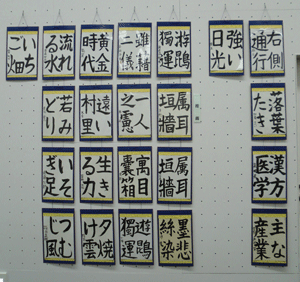 右側
通行
強い
日光
遊鵾
獨運
黄金
時代
流れ
る水
いち
ご畑
落葉
たき
属耳
垣牆
一人
遠い
村里
若み
どり
漢方
医学
属耳
垣牆
寓目
囊箱
生き
る力
いそ
ぎ足
主な
産業
墨悲
絲染
遊鵾
獨運
夕焼
け雲
つむ
じ風